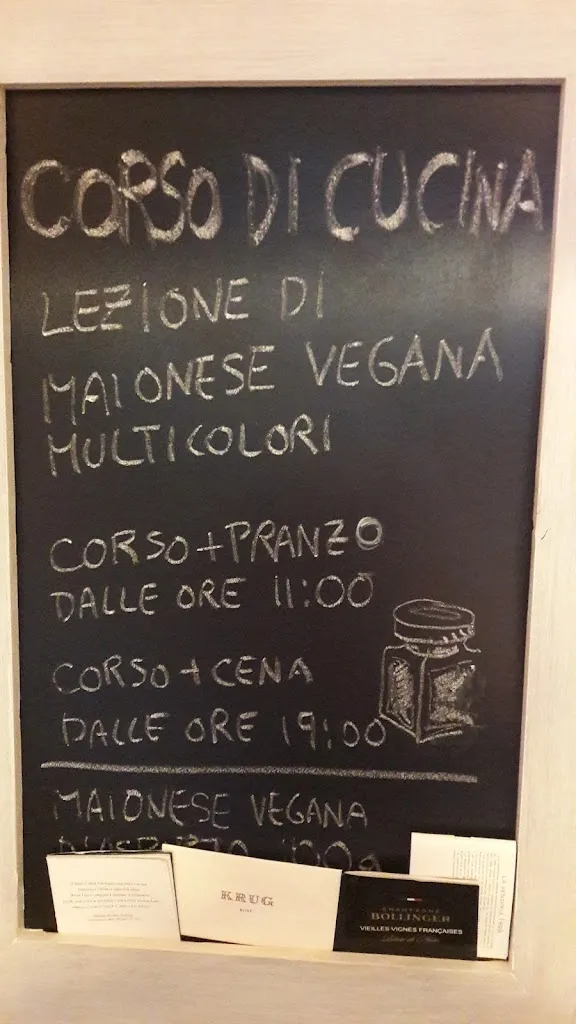 CORSO DI CUCINA
LEZIONE DI
MAIONESE VEGANA
MULTICOLORI
CORSO + PRANZO
DALLE ORE 11:00
CORSO + CENA
DALLE ORE 19:00
MAIONESE VEGANA
KRUG
CHAMPAGNE
BOLLINGER
VIEILLES VIGNES FRANÇAISES